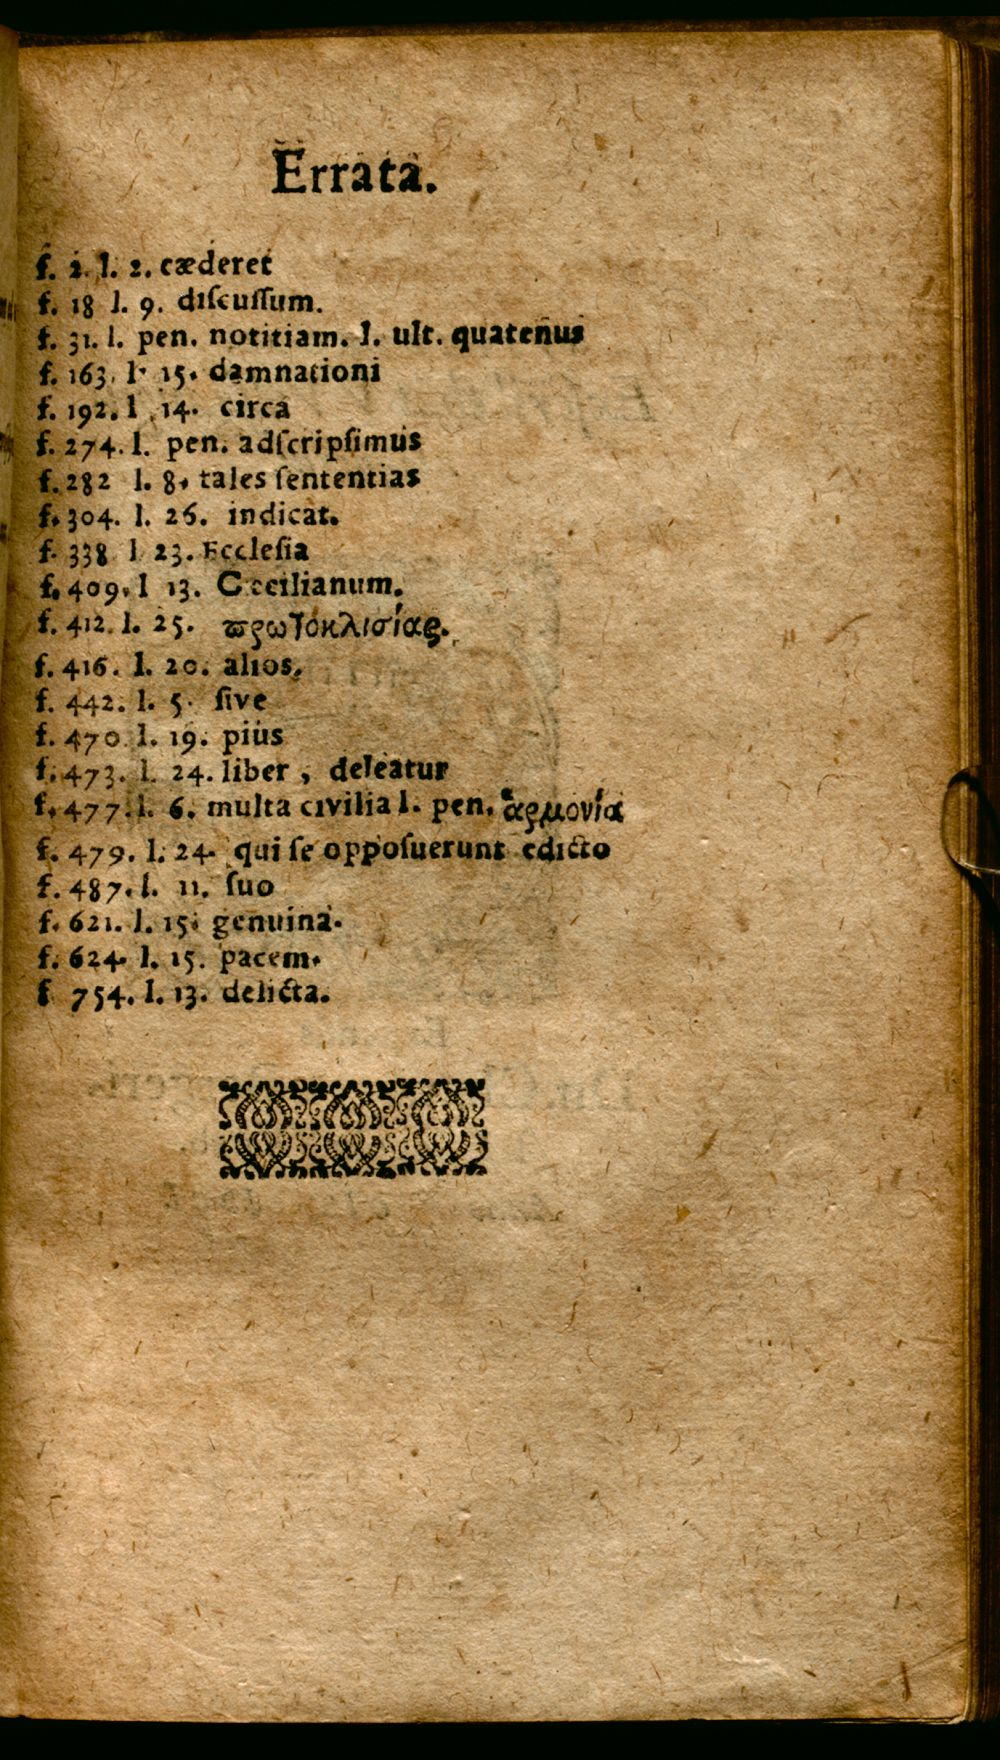 Errata.
f. 2. l. 2. cæderet
f. 18 l. 9. diſcuſſum.
f. 31. l. pen. notitiam. l. ult. quatenus
f. 163. l. 15. damnationi
f. 192. l. 14. circa
f. 274. l. pen. adſcripſimus
f. 282 l. 8. tales ſententias
f. 304. l. 26. indicat.
f. 338 l 23. Eccleſia
f. 409. l 13. Cœcilianum.
f. 412. l. 25. ϖρωτοκλισίας.
f. 416. l. 20. alios.
f. 442. l. 5. ſive
f. 470. l. 19. pius
f. 473. l. 24. liber, deleatur
f. 477. l. 6. multa civilia l. pen. ἁρμονία
f. 479. l. 24. qui ſe oppoſuerunt edicto
f. 487. l. 11. ſuo
f. 621. l. 15. genuina.
f. 624. l. 15. pacem.
f 754. l. 13. delicta.